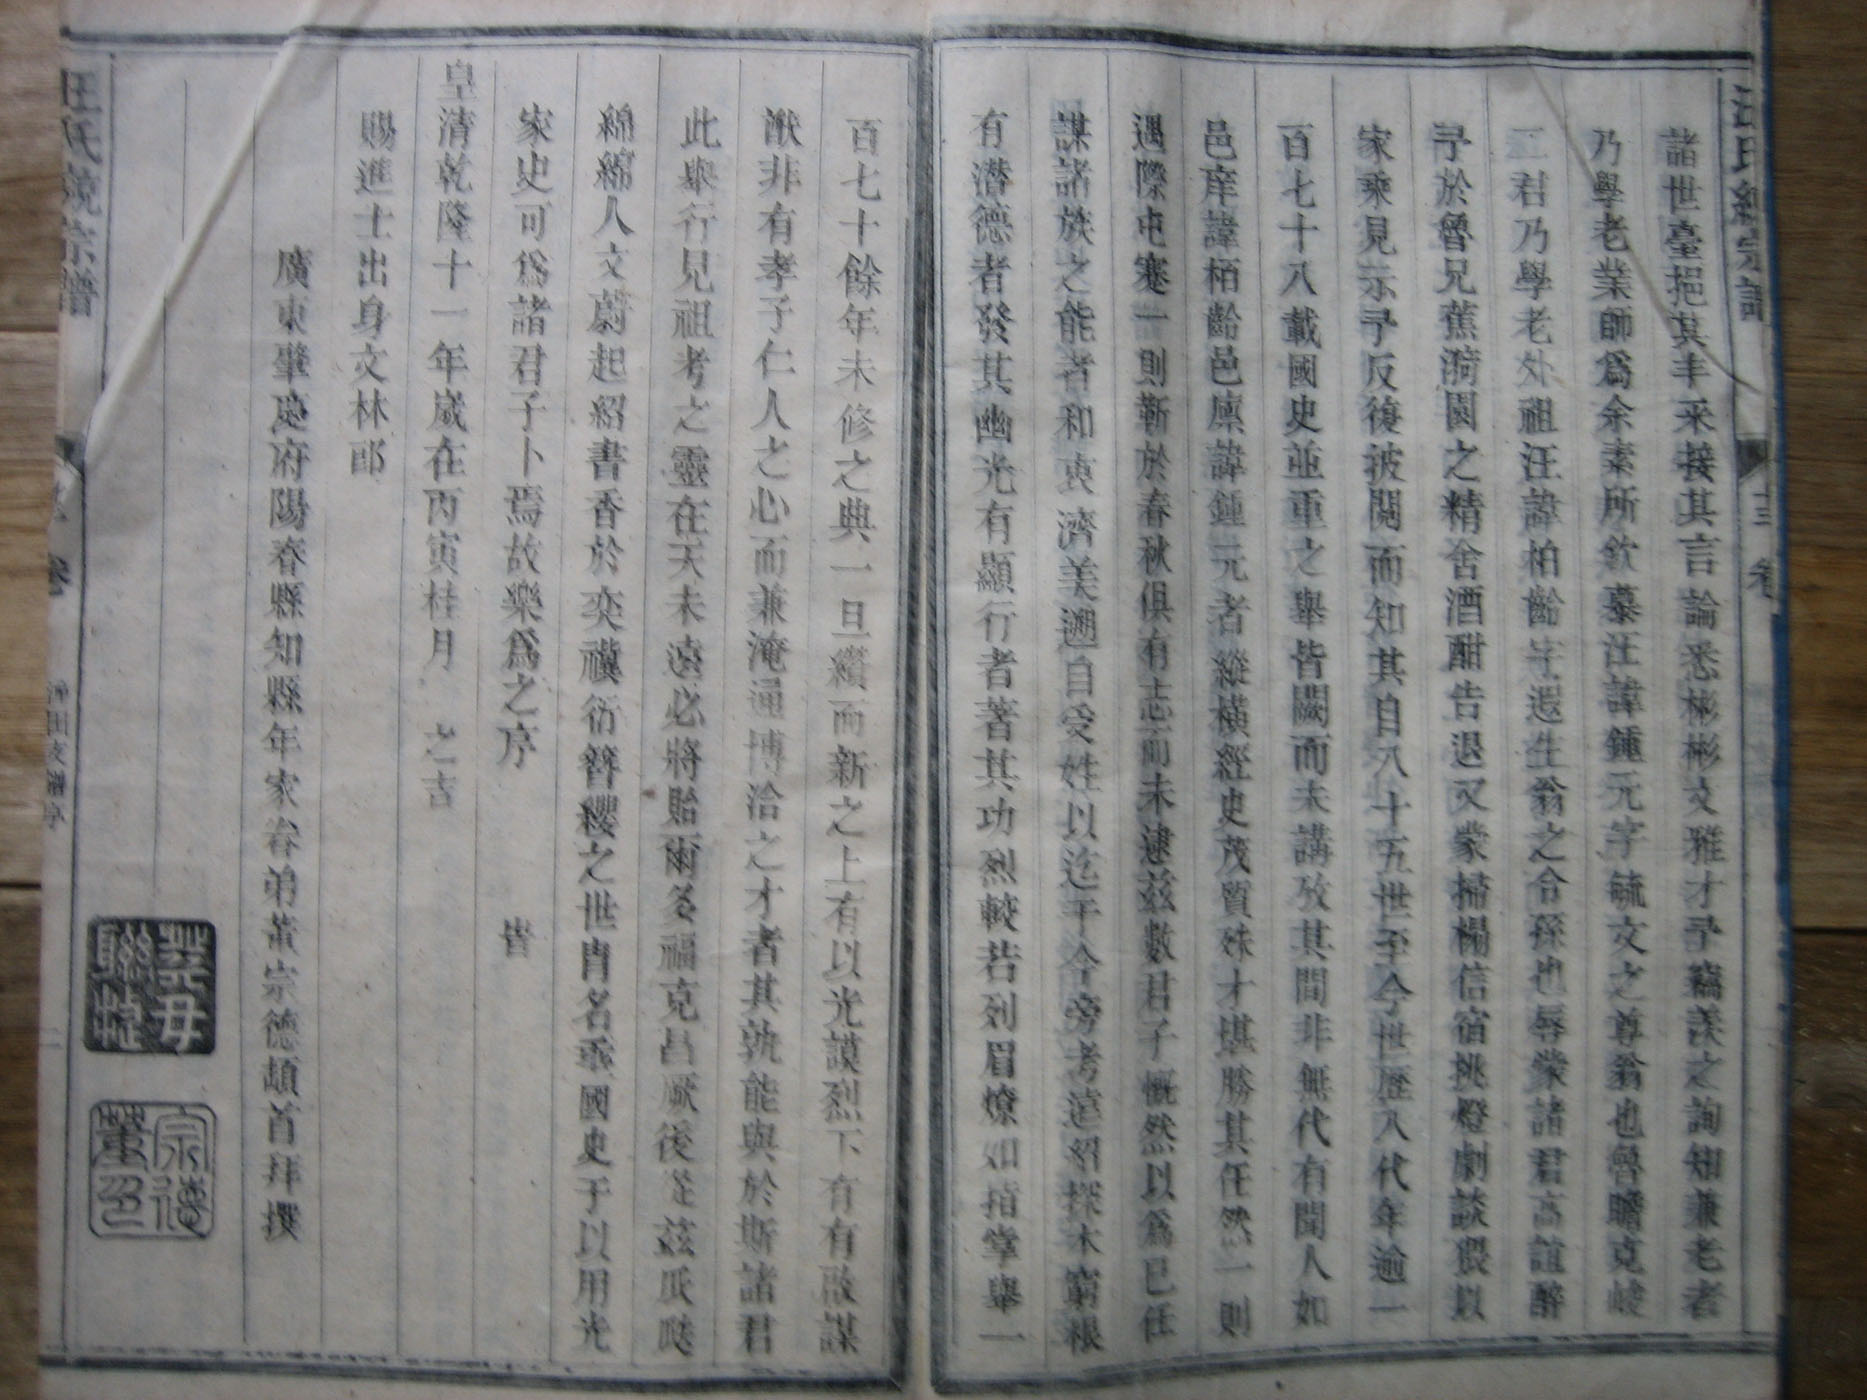 諸世臺挹其丰采接其言論悉彬彬文雅才予竊羨之詢知兼老者
乃學老業師為余素所欽慕汪諱鍾元字毓文之尊翁也魯瞻克峻
二君乃學老外祖汪諱柏齡字遐生翁之令孫也辱蒙諸君高誼醉
予於魯兄蕉漪園之精舍酒酣告退又蒙掃榻信宿挑燈劇談猥以
家乘見示予反復披閱而知其自八十五世至今世歷入代年逾一
百七十八載國史並重之舉皆闕而未講攷其間非無代有聞人如
邑庠諱栢齡邑廩諱鍾元者縱橫經史茂質殊才堪勝其任然一則
遇際屯蹇一則靳於春秋俱有志而未逮茲數君子慨然以為己任
謀諸族之能者和衷濟美遡自受姓以迄于今旁考遠紹探本窮根
有潛德者發其幽光有顯行者著其功烈較若列眉燎如指掌舉一
百七十餘年未修之典一旦纘而新之上有以光謨烈下有有啟謀
猷非有孝子仁人之心而兼淹通博洽之才者其孰能與於斯諸君
此舉行見祖考之靈在天未遠必將貽爾多福克昌厥後從茲瓜瓞
綿綿人文蔚起紹書香於奕禩衍簪纓之世胄名乘國史于以用光
家史可為諸君子卜焉故樂為之序 旹
皇清乾隆十一年歲在丙寅桂月 之吉
賜進士出身文林郎
廣東肇慶府陽春縣知縣年家眷弟董宗德頓首拜撰
宗德
董印
汪氏統宗譜